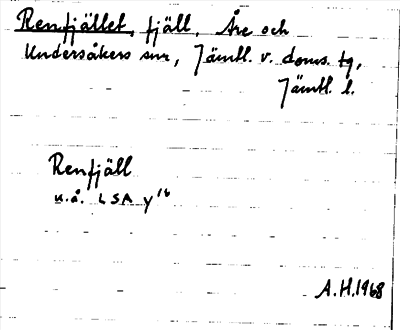 Renfjället, fjäll, Åre och
Undersåkers snr, Jämtl. v. doms. tg,
Jämtl. l.
Renfjäll
u.å. LSA y16
A.H.1968